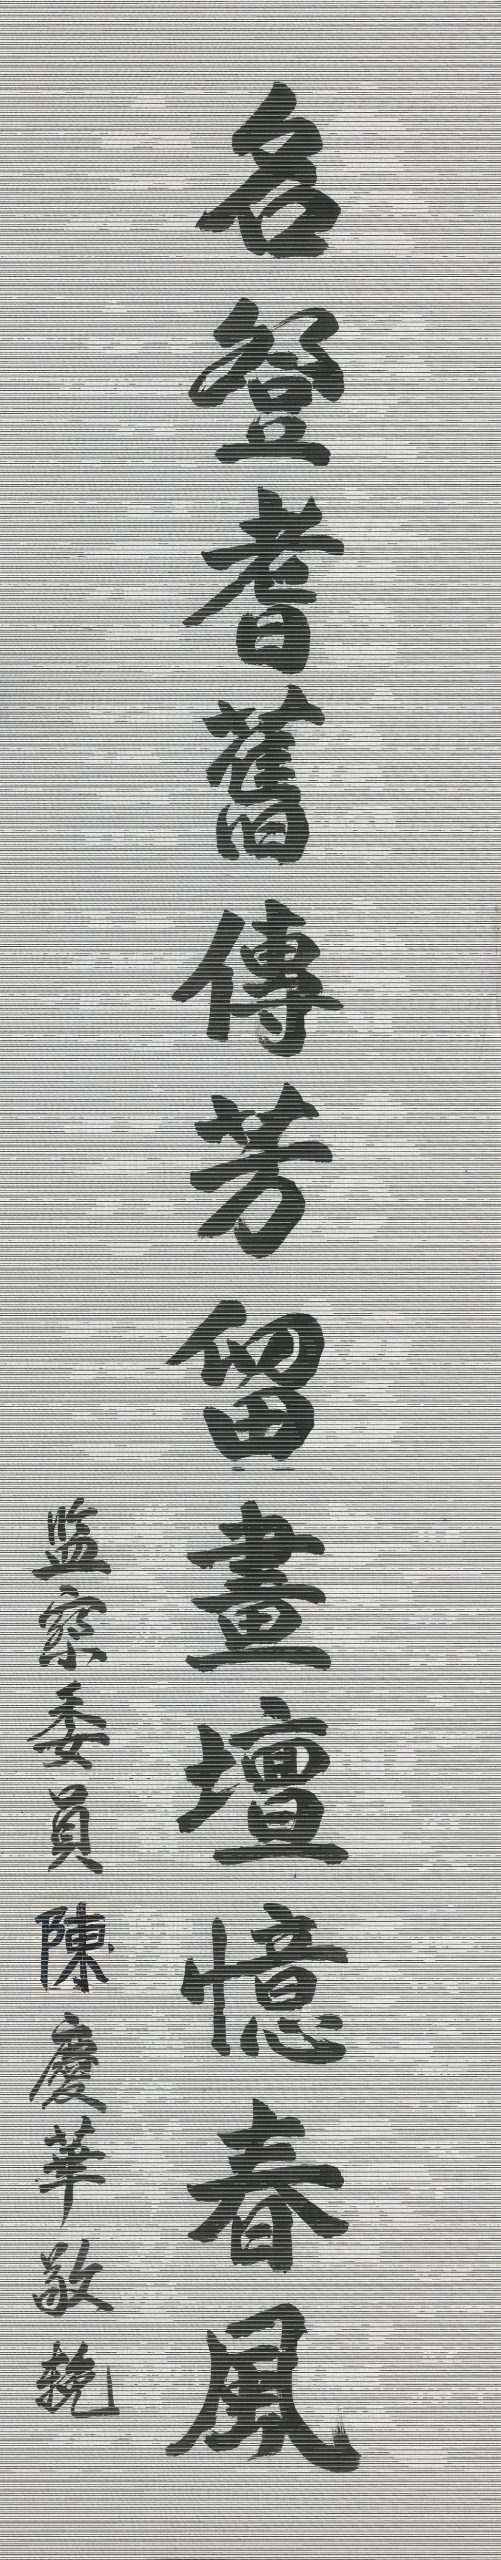 名登耆舊傳芳留畫壇憶春風
監察委員陳慶華敬輓